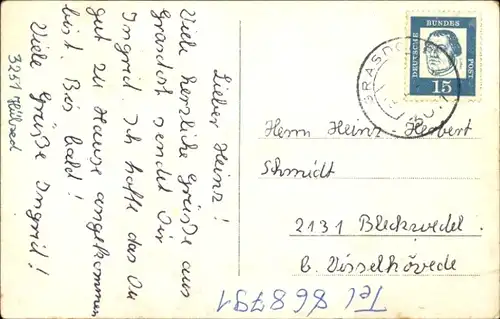 Lieber Heinz!
Viele herzliche Grüße aus
sendet Dir
Ingrid. Ich hoffe das Du
gut zu Hause angekommen
bist. Bis bald!
Viele Grüße Ingrid!
3251
DEUTSCHE BUNDES POST
15
GRASDORF
Herrn Heinz-Herbert
Schmidt
2131 Bleckwedel
b. Visselhövede
Tel 868791